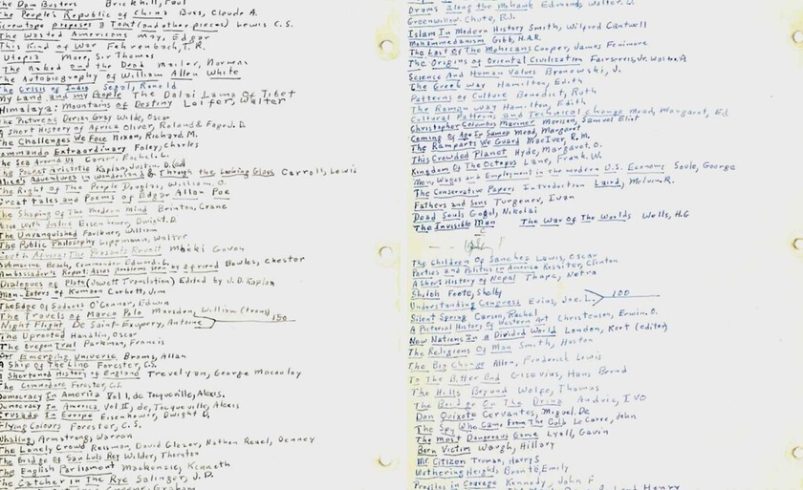 The Dam Busters Brickhill, Paul
The People's Republic of China Buss, Claude A.
Screwtape proposes a Toast (and other pieces) Lewis C.S.
The Wasted Americans May, Edgar
This Kind of War Fehrenbach, T.R.
Utopia More, Sir Thomas
The Naked and the Dead Mailer, Norman
The Autobiography of William Allen White
The Crisis of India Segal, Ronald
My Land and my People The Dalai Lama Of Tibet
Himalaya: Mountains of Destiny
The Picture of Dorian Gray Wilde, Oscar
A Short History of Africa Oliver, Roland & Fage J.D.
The Challenges We Face Nixon, Richard M.
Commando Extraordinary Foley, Charles
The Sea Around Us Carson, Rachel L.
The Pocket Aristotle Kaplan, Justin D.
Alice's Adventures in Wonderland & Through the Looking Glass Carroll, Lewis
The Right of The People Douglas, William O.
Great tales and Poems of Edgar Allan Poe
The Shaping Of The Modern Mind Brinton, Crane
Eisenhower, Dwight D.
The Unvanquished Faulkner, William
The Public Philosophy Lippmann, Walter
South Africa: The Peasants Revolt Mbeki Govan
Submarine Beach, Commander Edward L.
Ambassador's Report: Bowles, Chester
Dialogues of Plato (Jowett Translation) Edited by J.D. Kaplan
Man-Eaters of Kumaon Corbett, Jim
The Edge Of Sadness O'Connor, Edwin
The Travels of Marco Polo Marsden, William (trans)
Night Flight De Saint-Exupery, Antoine 150
The Uprooted Handlin, Oscar
The Oregon Trail Parkman, Francis
Our Emerging Universe Broms, Allan
A Ship Of The Line Forester, C.S.
A Shortened History of England Trevelyan, George Macaulay
The Commodore Forester, C.S.
Democracy In America Vol I, de, Tocqueville, Alexis.
Democracy In America Vol II, de, Tocqueville, Alexis
Crusade In Europe Eisenhower, Dwight D.
Flying Colours Forester, C.S.
Whaling, Armstrong, Warren
The Lonely Crowd Riesman, David Glazer, Nathan Reuel, Denney
The Bridge Of San Luis Rey Wilder, Thornton
The English Parliament Mackenzie, Kenneth
The Catcher in The Rye Salinger, J.D.
Drums along the Mohawk Edmonds, Walter D.
Greenwillow Chute, B.J.
Islam In Modern History Smith, Wilfred Cantwell
Mohammedanism Gibb, H.A.R.
The Last Of The Mohicans Cooper, James Fenimore
The Origins of Oriental Civilization Fairservis, Jr. Walter A
Science And Human Values Bronowski, J.
The Greek Way Hamilton, Edith
Patterns of Culture Benedict, Ruth
The Roman Way Hamilton, Edith
Cultural Patterns and Technical Change Mead, Margaret, Ed
Christopher Columbus Mariner Morison, Samuel Eliot
Coming Of Age In Samoa Mead, Margaret
The Ramparts We Guard MacIver, R.M.
This Crowded Planet Hyde, Margaret, O.
Kingdom Of The Octopus Lane, Frank W.
Wages and Employment in the modern U.S. Economy Soule, George
The Conservative Papers Introduction Laird, Melvin R.
Fathers and Sons Turgenev, Ivan
Dead Souls Gogol, Nikolai
The Invisible Man The War Of The Worlds Wells, H.G
The Children Of Sanchez Lewis, Oscar
Parties and Politics in America Rossiter, Clinton
A Short History of Nepal Thapa, Netra
Shiloh Foote, Shelby
Understanding Congress Evins, Joe L. 100
Silent Spring Carson, Rachel
A Pictorial History Of Western Art Christensen, Erwin, O.
New Nations In a Divided World London, Kurt (editor)
The Religions Of Man Smith, Huston
The Big Change Allen, Frederick Lewis
To The Bitter End Gisevius, Hans Bernd
The Hills Beyond Wolfe, Thomas
The Bridge On The Drina Andric, IVO
Don Quixote Cervantes, Miguel De
The Spy Who Came From The Cold Le Carre, John
The most Dangerous Game Lyall, Gavin
Born Victim Waugh, Hillary
Mr. Citizen Truman, Harry S
Wuthering Heights Brontë, Emily
Profiles in Courage Kennedy, John F